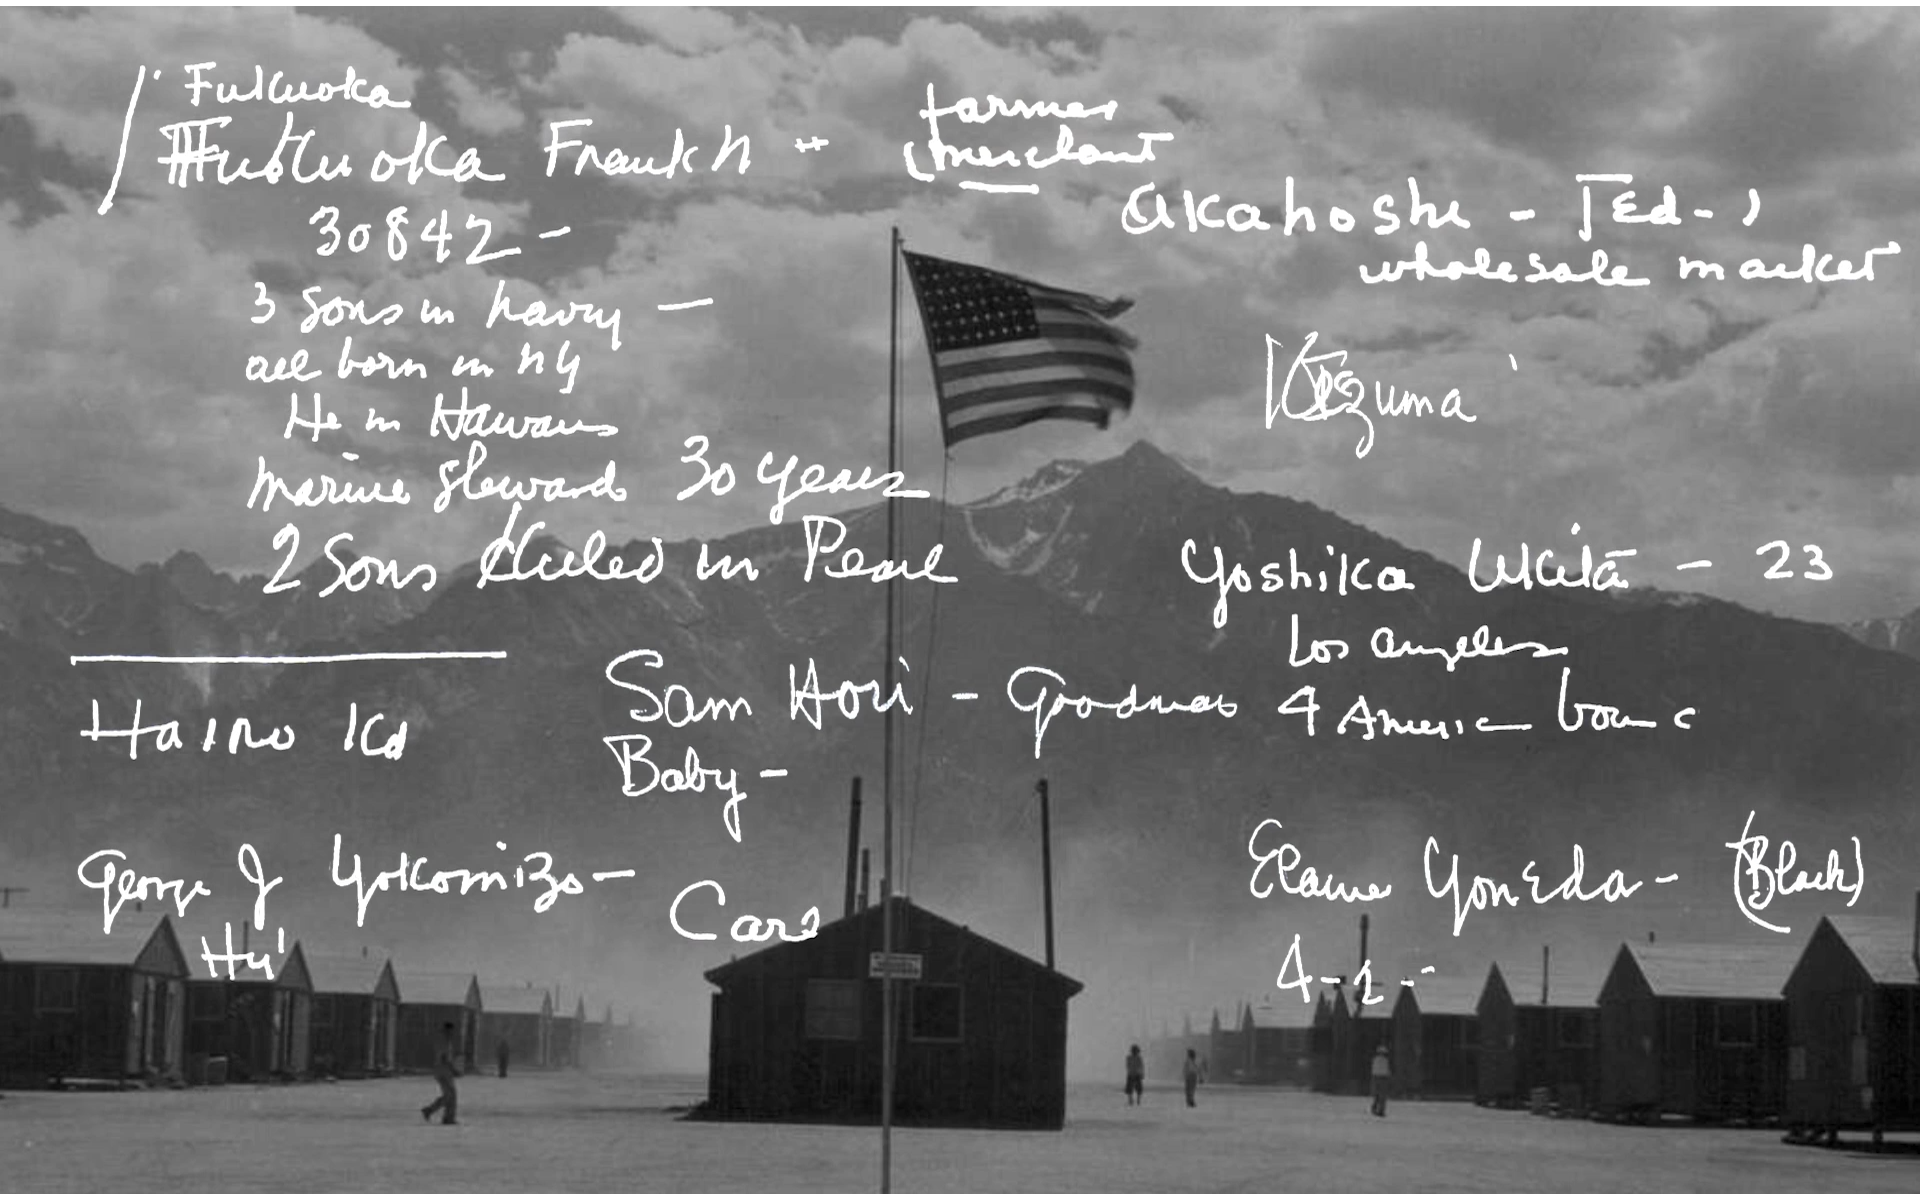 Fukuoka
Fukuoka Frank N -
farmer
merchant
30842 -
3 sons in navy -
all born in NY
He in
marine steward 30 years
2 Sons killed in Pearl
Akahoshi - Ted -
wholesale market
Kozuma
Yoshika - 23
Los Angeles
Sam Hori - 4 born
Baby -
George J Yokomizo -
Care
Elaine Yoneda - (Black)